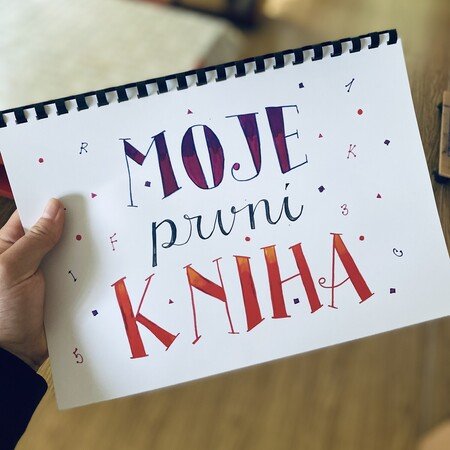 MOJE
první
KNIHA
R
1
K
F
3
I
C
5